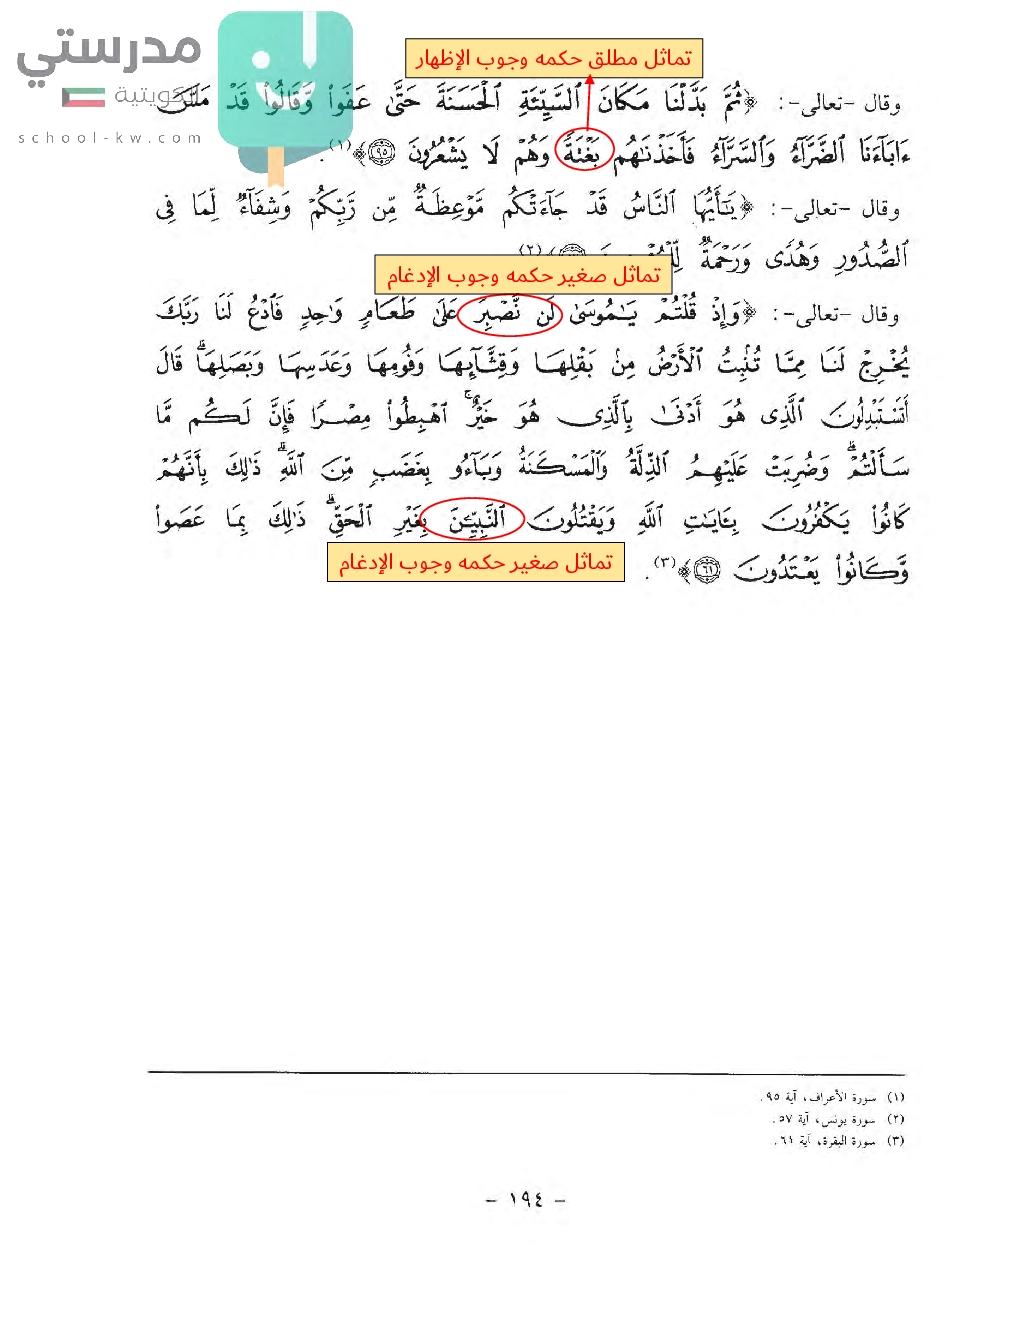 مدرستي
الكويتية
school-kw.com
تماثل مطلق حكمه وجوب الإظهار
وقال -تعالى-: ﴿ثُمَّ بَدَّلْنَا مَكَانَ ٱلسَّيِّئَةِ ٱلْحَسَنَةَ حَتَّىٰ عَفَوا۟ وَّقَالُوا۟ قَدْ مَسَّ
ءَابَآءَنَا ٱلضَّرَّآءُ وَٱلسَّرَّآءُ فَأَخَذْنَٰهُم بَغْتَةً وَهُمْ لَا يَشْعُرُونَ ٩٥﴾(١).
وقال -تعالى-: ﴿يَٰٓأَيُّهَا ٱلنَّاسُ قَدْ جَآءَتْكُم مَّوْعِظَةٌ مِّن رَّبِّكُمْ وَشِفَآءٌ لِّمَا فِى
ٱلصُّدُورِ وَهُدًى وَرَحْمَةٌ (٢)
تماثل صغير حكمه وجوب الإدغام
وقال -تعالى-: ﴿وَإِذْ قُلْتُمْ يَٰمُوسَىٰ لَن نَّصْبِرَ عَلَىٰ طَعَامٍ وَٰحِدٍ فَٱدْعُ لَنَا رَبَّكَ
يُخْرِجْ لَنَا مِمَّا تُنۢبِتُ ٱلْأَرْضُ مِنۢ بَقْلِهَا وَقِثَّآئِهَا وَفُومِهَا وَعَدَسِهَا وَبَصَلِهَا ۖ قَالَ
أَتَسْتَبْدِلُونَ ٱلَّذِى هُوَ أَدْنَىٰ بِٱلَّذِى هُوَ خَيْرٌ ۚ ٱهْبِطُوا۟ مِصْرًا فَإِنَّ لَكُم مَّا
سَأَلْتُمْ ۗ وَضُرِبَتْ عَلَيْهِمُ ٱلذِّلَّةُ وَٱلْمَسْكَنَةُ وَبَآءُو بِغَضَبٍ مِّنَ ٱللَّهِ ۗ ذَٰلِكَ بِأَنَّهُمْ
كَانُوا۟ يَكْفُرُونَ بِـَٔايَٰتِ ٱللَّهِ وَيَقْتُلُونَ ٱلنَّبِيِّـۧنَ بِغَيْرِ ٱلْحَقِّ ۗ ذَٰلِكَ بِمَا عَصَوا۟
تماثل صغير حكمه وجوب الإدغام
وَّكَانُوا۟ يَعْتَدُونَ ٦١﴾(٣).
(١) سورة الأعراف، آية ٩٥.
(٢) سورة يونس، آية ٥٧.
(٣) سورة البقرة، آية ٦١.
- ١٩٤ -